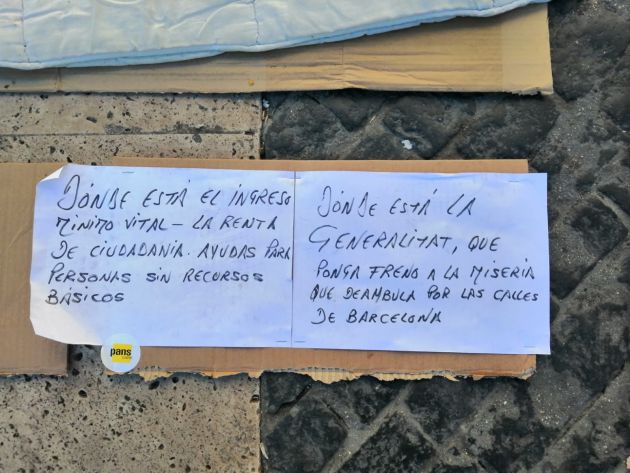 DÓNDE ESTÁ EL INGRESO
MINIMO VITAL - LA RENTA
DE CIUDADANIA. AYUDAS PARA
PERSONAS SIN RECURSOS
BÁSICOS
DÓNDE ESTÁ LA
GENERALITAT, QUE
PONGA FRENO A LA MISERIA
QUE DEAMBULA POR LAS CALLES
DE BARCELONA
pans